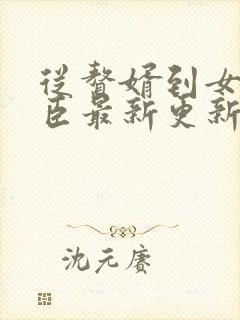 从赘婿到女
臣最新更新
沈元赛